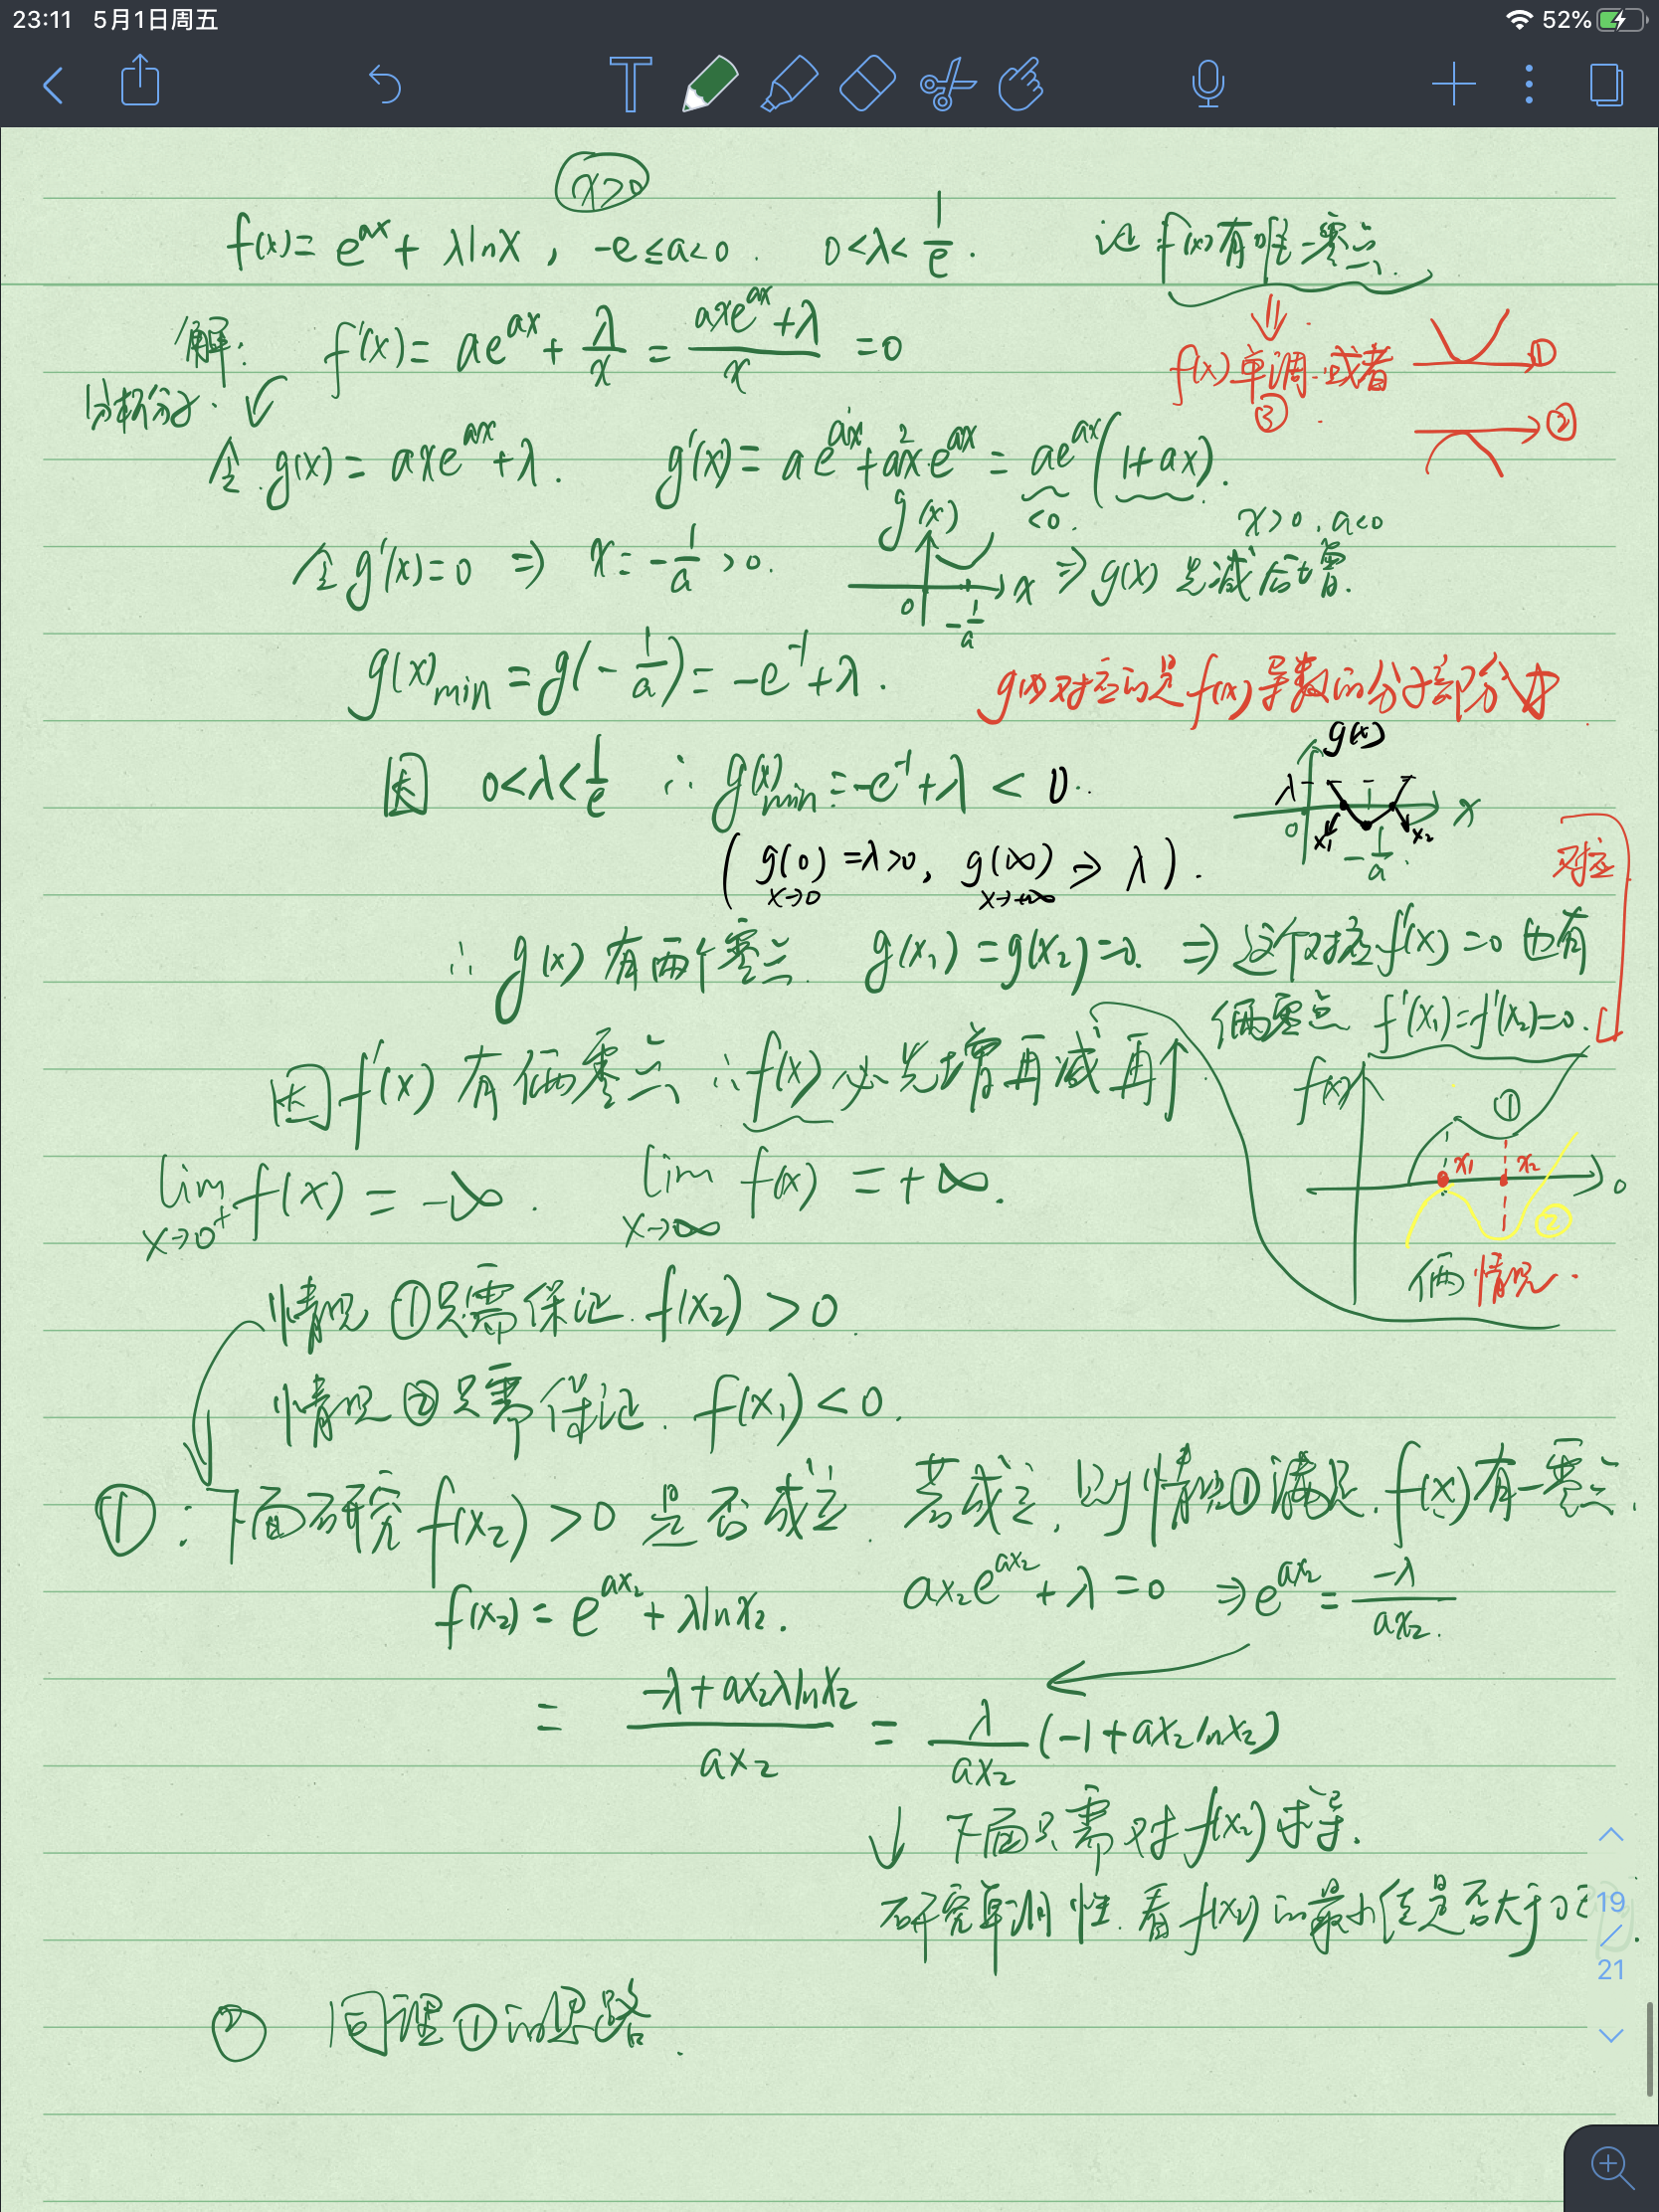 23:11 5月1日周五
52%
x>0
f(x)= e^{ax}+ λlnx , -e≤a<0 . 0<λ<1/e . 证 f(x)有唯一零点.
解: f'(x)= ae^{ax}+ λ/x = (axe^{ax}+λ)/x =0
⇓ .
f(x)单调. 或者 ①
③ .
②
分析分子.
令 g(x)= axe^{ax}+λ . g'(x)= ae^{ax}+a²xe^{ax} = ae^{ax}(1+ax).
<0. x>0 , a<0
令 g'(x)=0 ⇒ x=-1/a >0.
g(x)
0 -1/a x
⇒ g(x) 先减后增.
g(x)min = g(-1/a)= -e^{-1}+λ .
g(x)对应的是f(x)导数的分子部分
因 0<λ<1/e ∴ g(x)min = -e^{-1}+λ < 0..
g(x)
λ 0 x₁ x₂ x
-1/a .
( g(0) =λ>0, g(∞) → λ ) .
x→0 x→+∞
对应
∴ g(x) 有两个零点. g(x₁) =g(x₂)=0. ⇒ 这个对应f'(x) =0 也有
俩零点 f'(x₁)=f'(x₂)=0.
因f'(x) 有俩零点 ∴f(x) 必先增再减再↑
f(x)
①
x₁ x₂
0
②
俩情况.
lim f(x) = -∞ . lim f(x) = +∞.
x→0⁺ x→∞
情况 ①只需保证. f(x₂) >0.
情况 ②只需保证. f(x₁) <0.
① : 下面研究 f(x₂) >0 是否成立. 若成立, 则情况①满足. f(x)有一零点.
f(x₂) = e^{ax₂}+ λlnx₂. ax₂e^{ax₂}+ λ =0 ⇒ e^{ax₂} = -λ/ax₂.
= (-λ+ax₂λlnx₂)/ax₂ = λ/ax₂ (-1+ax₂lnx₂)
↓ 下面只需对f(x₂)求导.
研究单调性. 看f(x₂)的最小值是否大于0
19
/
21
② 同理①的思路.